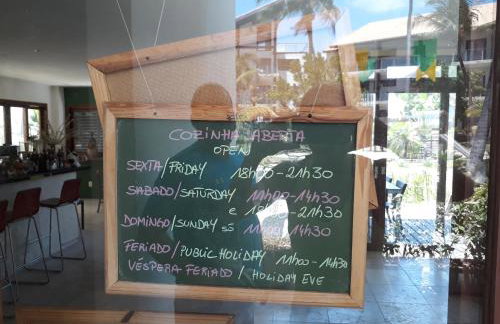 COZINHA ABERTA
OPEN!
SEXTA/FRIDAY 18h00-21h30
SABADO/SATURDAY 11h00-14h30
e 21h30
DOMINGO/SUNDAY SÓ 14h30
FERIADO/PUBLIC HOLIDAY 11h00-14h30
VÉSPERA FERIADO/HOLIDAY EVE